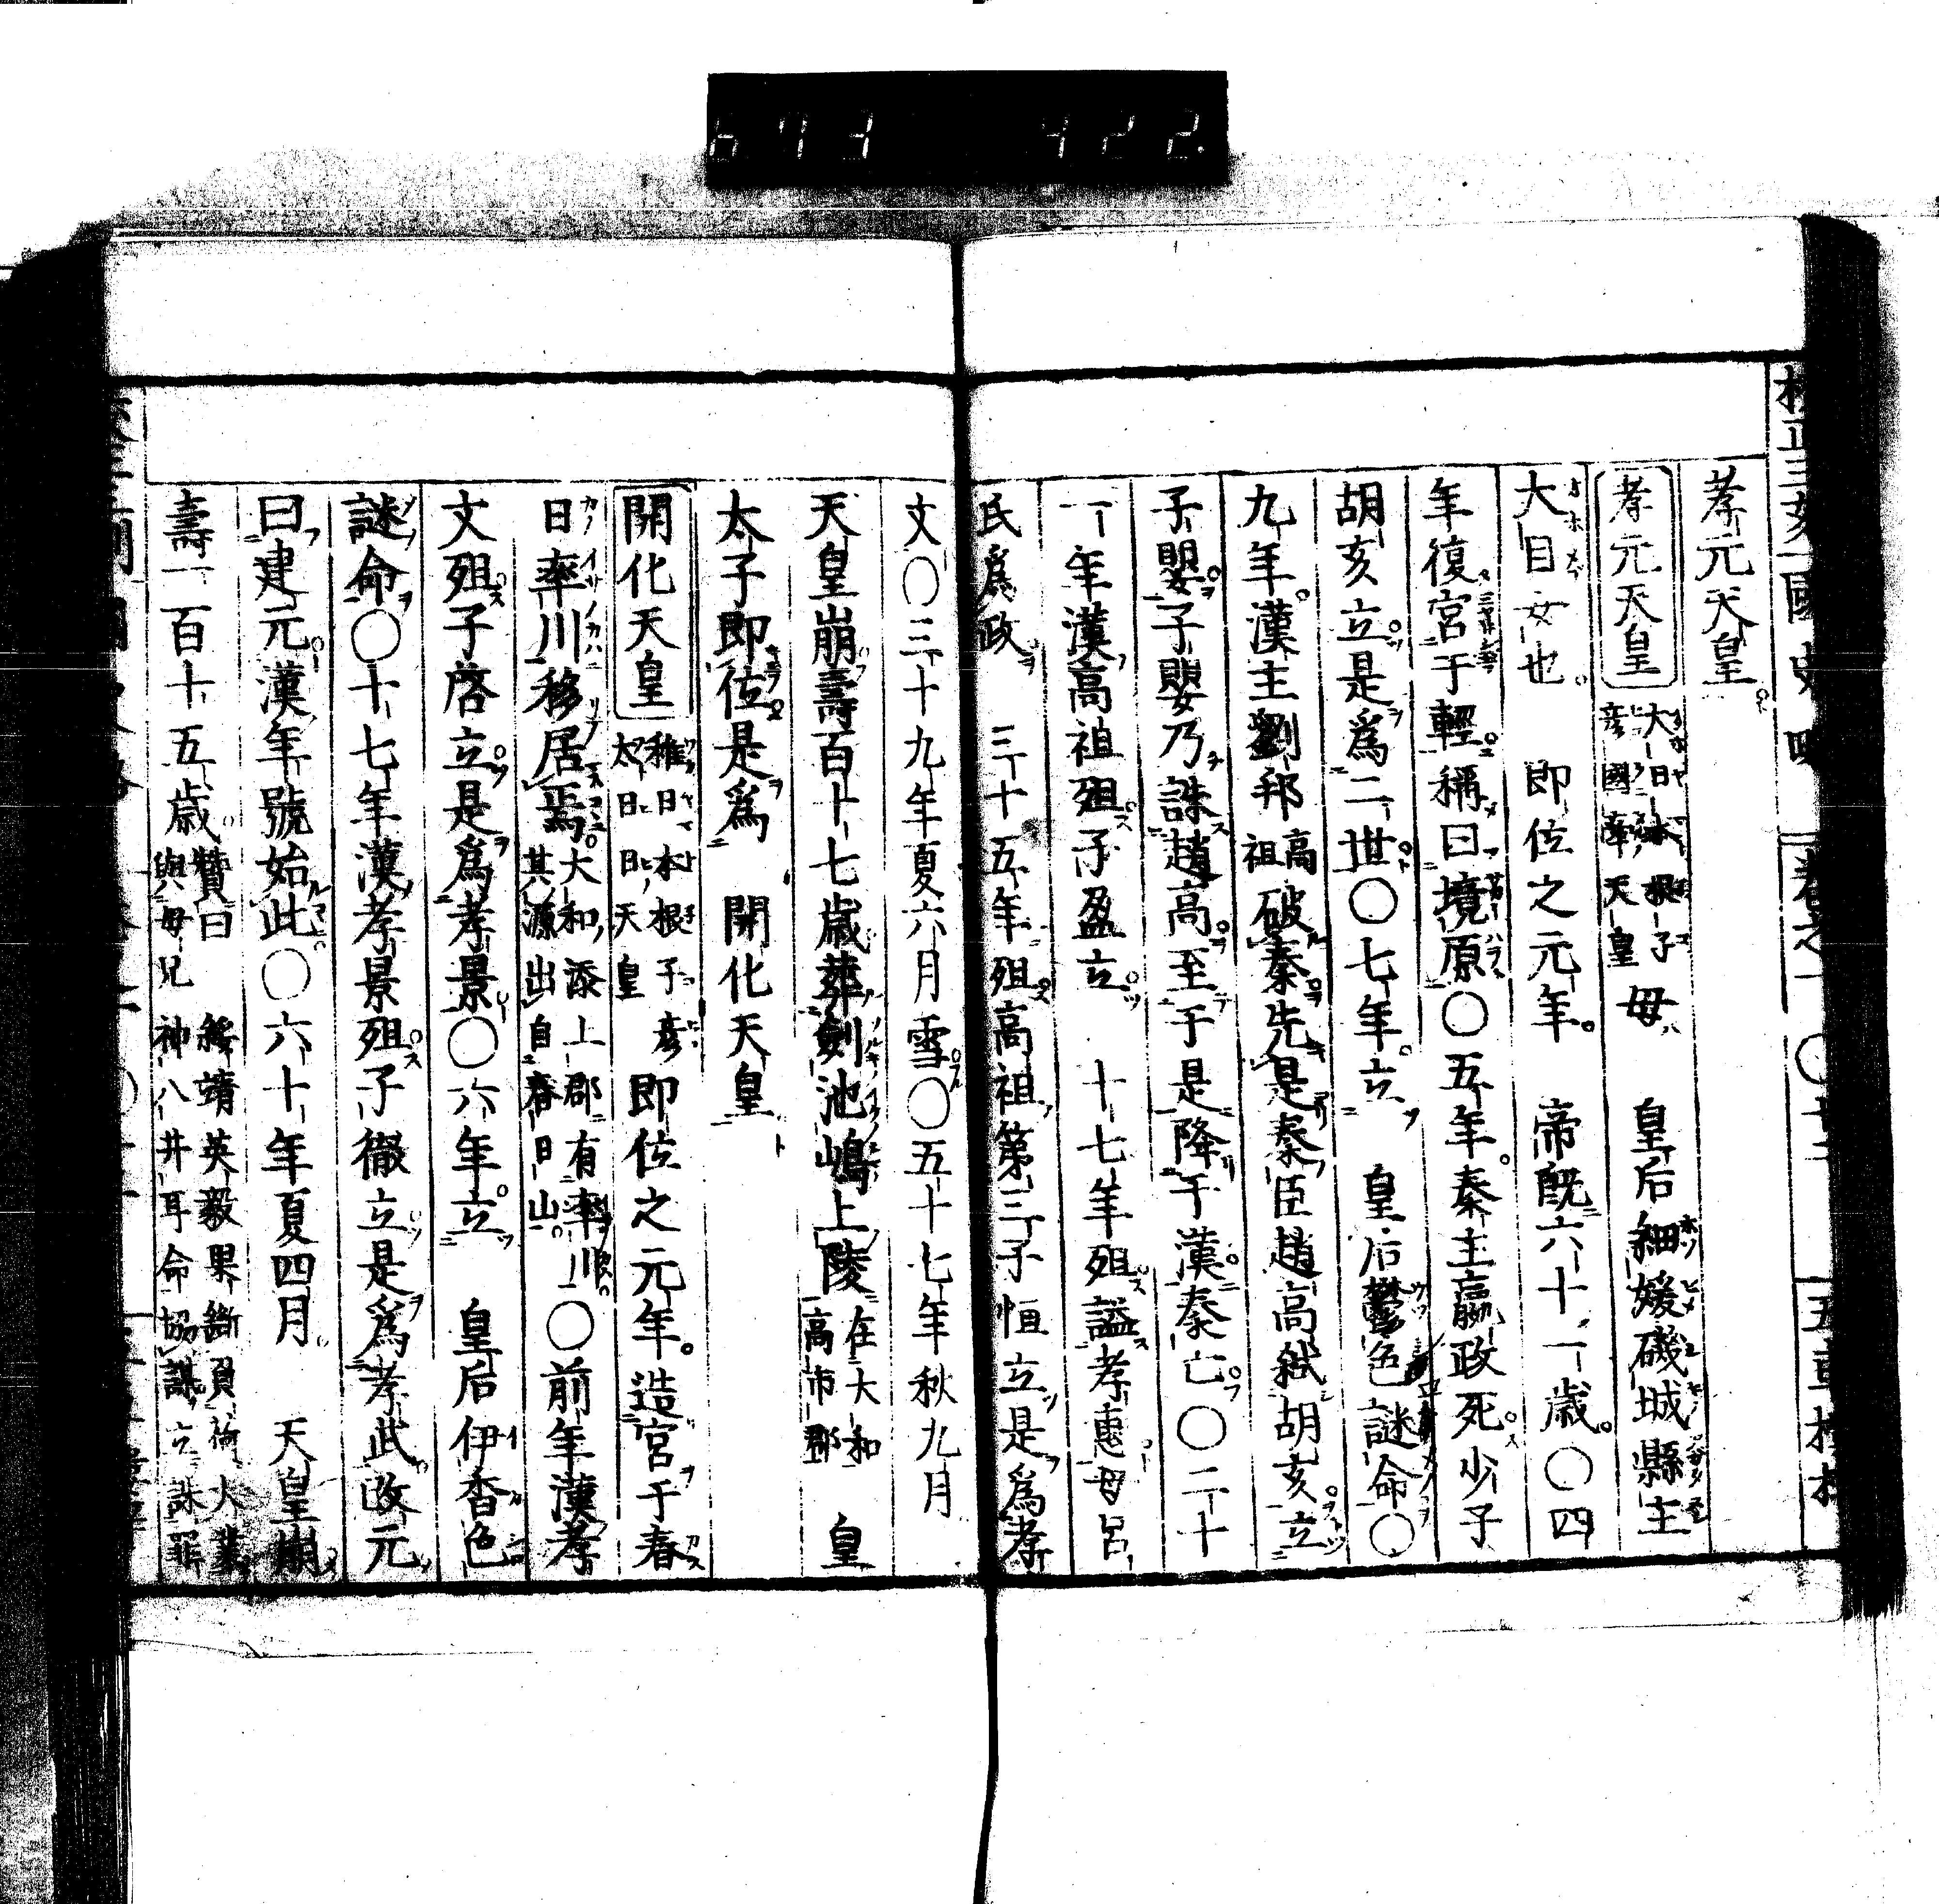 孝元天皇
孝元天皇 大日本根子彥國牽天皇 母 皇后細媛磯城縣主
大目女也 即位之元年 帝既六十一歲〇四
年復宮于輕稱曰境原〇五年秦主嬴政死少子
胡亥立是爲二世〇七年立 皇后鬱色謎命〇
九年漢主劉邦高祖破秦先是秦臣趙高弑胡亥立
子嬰子嬰乃誅趙高至于是降于漢秦亡〇二十
一年漢高祖殂子盈立 十七年殂謚孝惠母呂
氏爲政 三十五年殂高祖第三子恒立是爲孝
文〇三十九年夏六月雪〇五十七年秋九月
天皇崩壽百十七歲葬劍池嶋上陵在大和高市郡 皇
太子即位是爲 開化天皇
開化天皇 稚日本根子彥太日日天皇 即位之元年造宮于春
日率川移居焉大和添上郡有率川其源出自春日山〇前年漢孝
文殂子啓立是爲孝景〇六年立 皇后伊香色
謎命〇十七年漢孝景殂子徹立是爲孝武改元
曰建元漢年號始此〇六十年夏四月 天皇崩
壽一百十五歲 贊曰 綏靖英毅果斷負荷大業與母兄神八井耳命協謀立誅罪